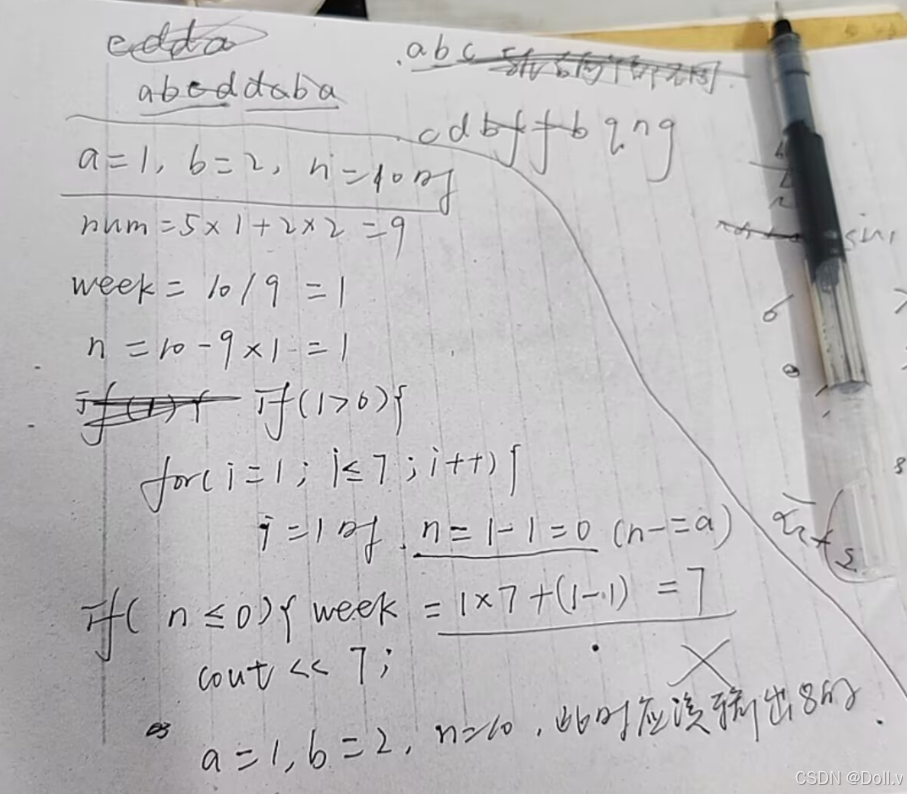 cdda
abc
abcddaba
cdbffbqng
a=1, b=2, n=10时
num=5×1+2×2=9
week= 10/9 =1
n =10-9×1=1
if(1>0){
for(i=1; i≤7; i++){
i=1时. n=1-1=0 (n-=a)
if( n≤0){ week =1×7+(1-1) =7
cout << 7;
a=1, b=2, n=10, 此时应该输出8的.
CSDN @Doll.v